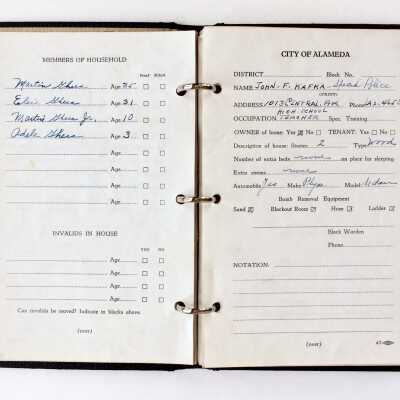 MEMBERS OF HOUSEHOLD
Age 35
Elsie Age 31
Martin Jr. Age 10
Adele Age 3
Age
Age
Age
Age
Age
INVALIDS IN HOUSE
YES NO
Age
Age
Age
Age
Can invalids be moved? Indicate in blacks above.
(over)
CITY OF ALAMEDA
DISTRICT Block No.
NAME JOHN - F. KAFKA - Head Police
ADDRESS 1013 CENTRAL AVE Phone
HIGH SCHOOL
OCCUPATION TEACHER Spec. Training
OWNER of home: Yes No TENANT: Yes No
Description of house: Stories 2 Type Wood
Number of extra beds none on place for sleeping.
Extra stoves none
Automobile Yes Make Plym Model Sedan
Bomb Removal Equipment
Sand Blackout Room Hose Ladder
Block Warden
Phone
NOTATION:
(over)